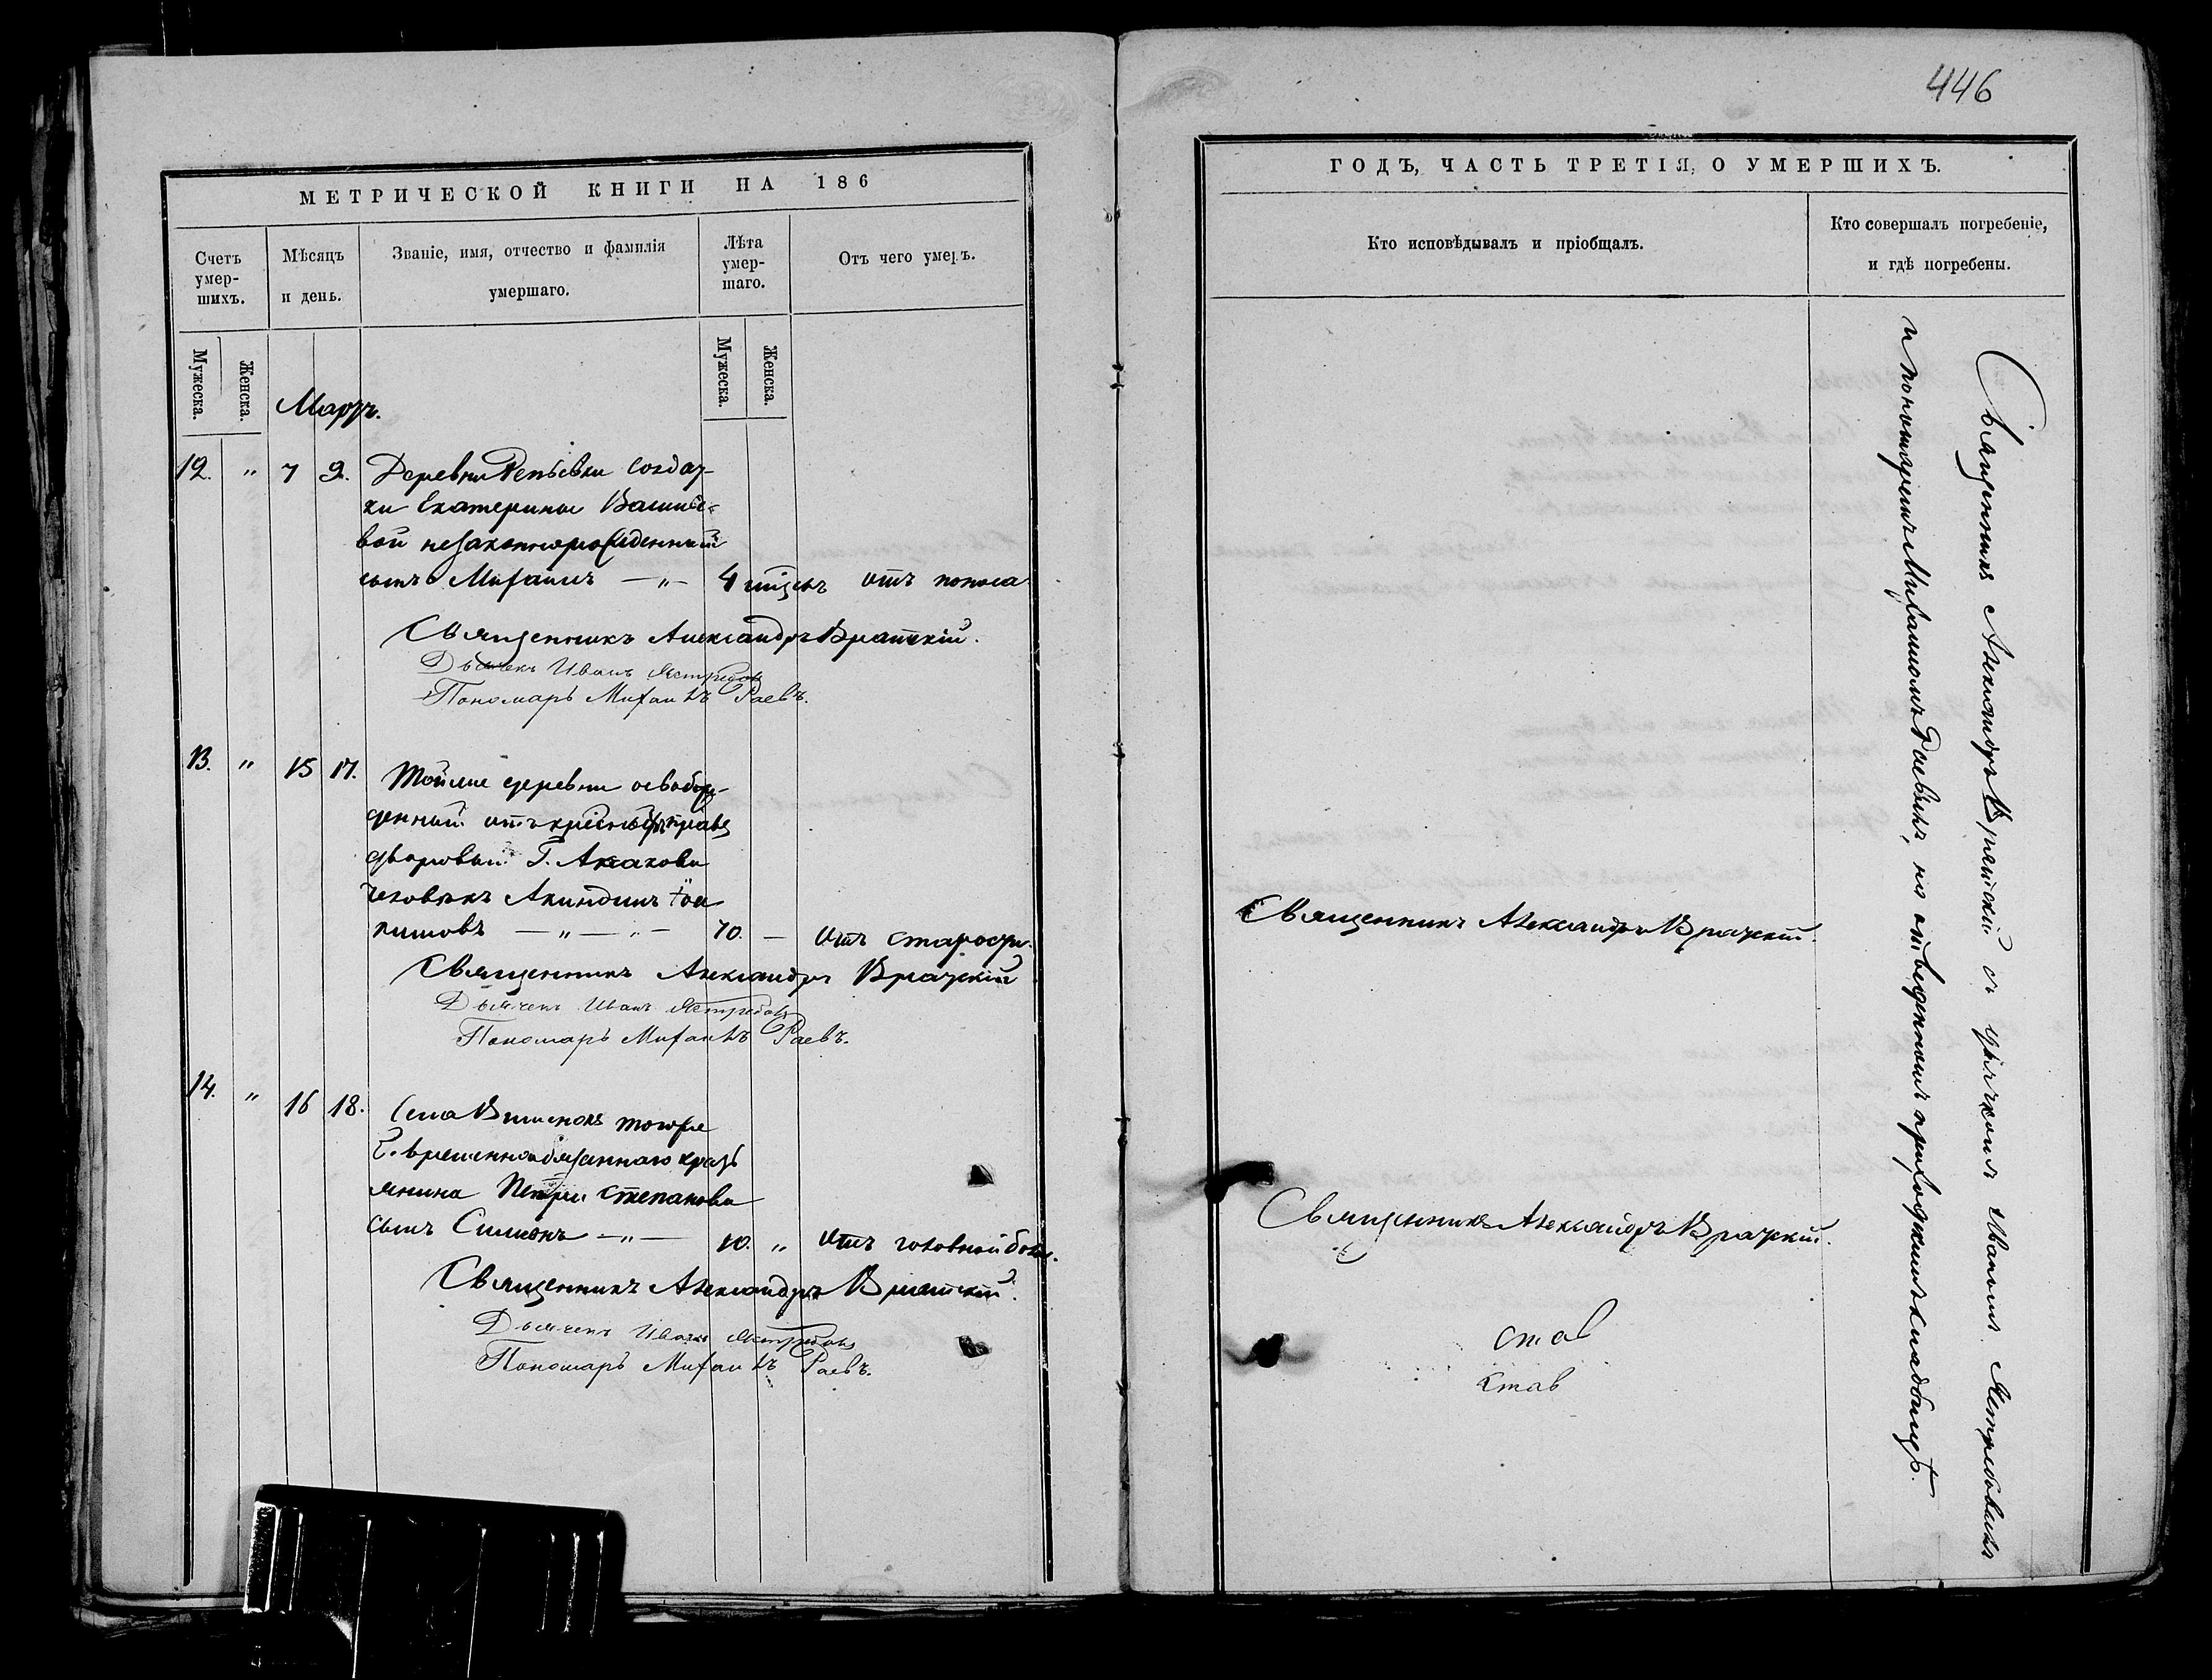 МЕТРИЧЕСКОЙ КНИГИ НА 186
Счетъ умер-шихъ.
Мѣсяцъ и день.
Званіе, имя, отчество и фамилія умершаго.
Лѣта умер-шаго.
Отъ чего умеръ.
Мужеска.
Женска.
Мужеска.
Женска.
Мартъ.
12. " 7 9. Деревни Репьевки солдат-
ки Екатерины Василье-
вой незаконнорожденный
сынъ Михаилъ — " — 4 мѣсяцъ отъ поноса
Священникъ Александръ
Дьячекъ Иванъ Ястребовъ
Пономарь Михаилъ Раевъ.
13. " 15 17. Тойже деревни освобож-
денный отъ крѣпостн. права
дворовый Г. Аксакова
человѣкъ Акиндинъ Іоа
кимовъ — " — " — 70. — отъ старости.
Священникъ Александръ
Дьячекъ Иванъ Ястребовъ
Пономарь Михаилъ Раевъ.
14. " 16 18. Села Вишенокъ тогоже
Г. временнообязаннаго крест
янина Петра Степанова
сынъ Симеонъ — " — 10. " отъ головной боли.
Священникъ Александръ
Дьячекъ Иванъ Ястребовъ
Пономарь Михаилъ Раевъ.
446
ГОДЪ, ЧАСТЬ ТРЕТІЯ, О УМЕРШИХЪ.
Кто исповѣдывалъ и пріобщалъ.
Кто совершалъ погребеніе,
и гдѣ погребены.
Священникъ Александръ
Священникъ Александръ
став
став
Священникъ Александръ съ дьячкомъ Иваномъ Ястребовымъ
и пономаремъ Михаиломъ Раевымъ, на отведенномъ приходскомъ кладбищѣ.